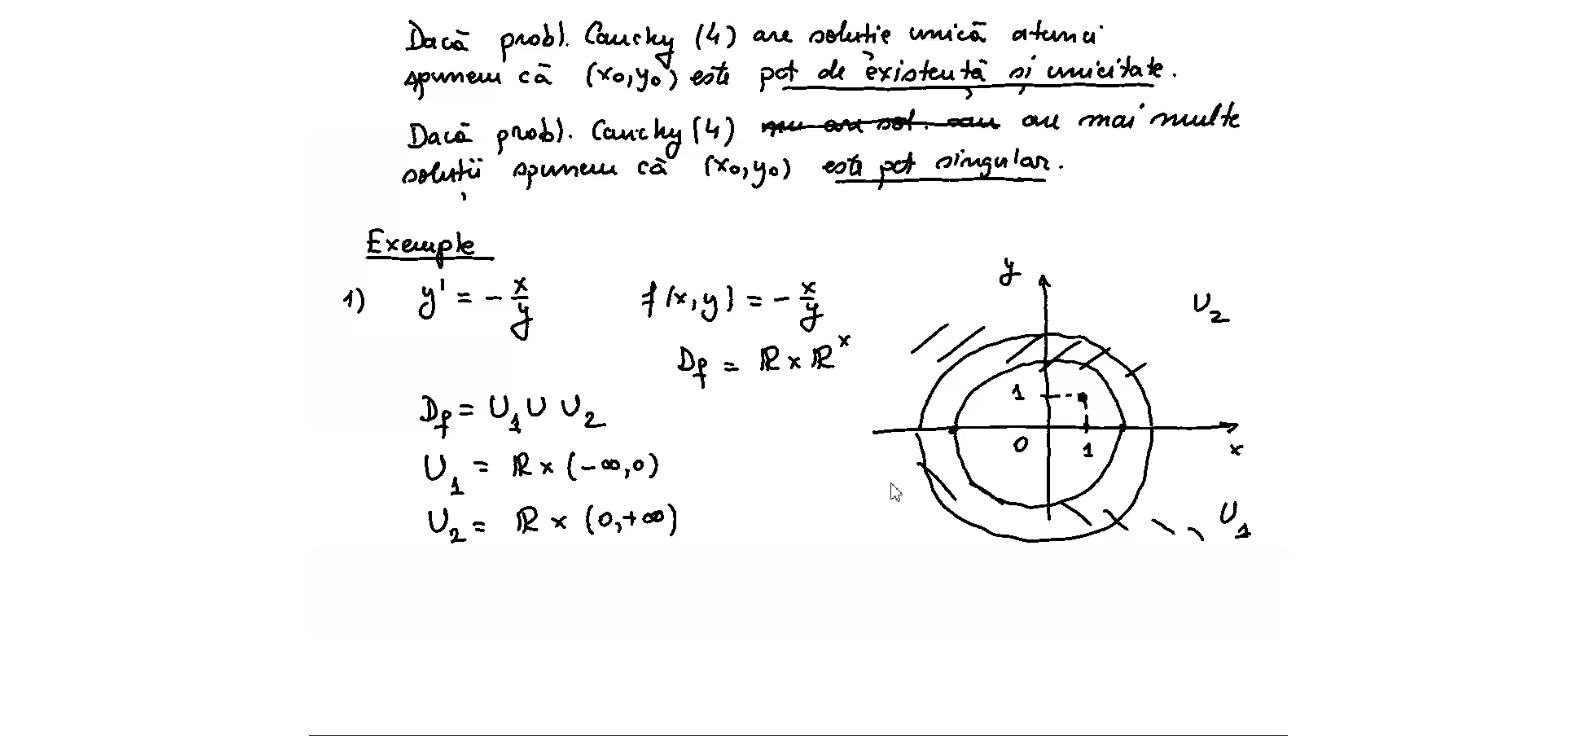 Dacă probl. Cauchy (4) are soluție unică atunci
spunem că (x₀,y₀) este pct de existență și unicitate.
Dacă probl. Cauchy (4) nu are sol. sau are mai multe
soluții spunem că (x₀,y₀) este pct singular.
Exemple
1) y' = - x/y f(x,y) = - x/y
D_f = ℝ × ℝ*
D_f = U₁ ∪ U₂
U₁ = ℝ × (-∞,0)
U₂ = ℝ × (0,+∞)
y
U₂
1
0 1 x
U₁